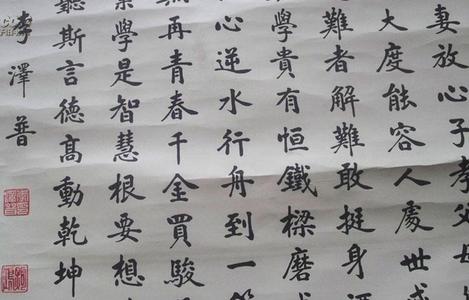 妻放心子孝父母
大度能容人處世
難者解難敢挺身
學貴有恒鐵樑磨
心逆水行舟到一篙
再青春千金買駿
學是智慧根要想
聽斯言德高動乾坤
李澤普